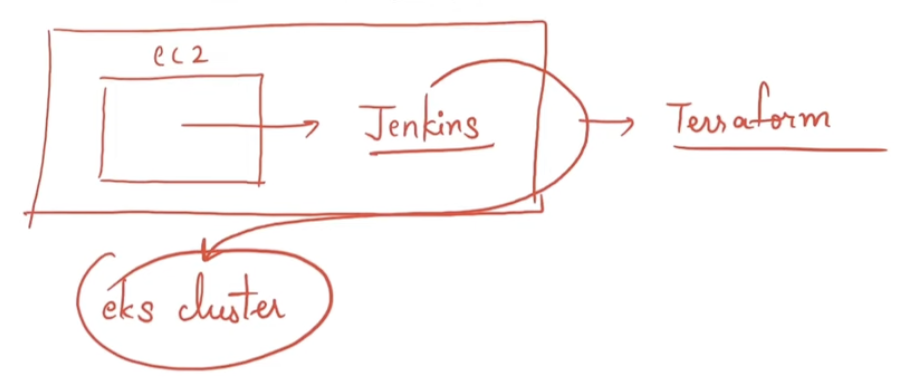 ec2
Jenkins
Terraform
eks cluster